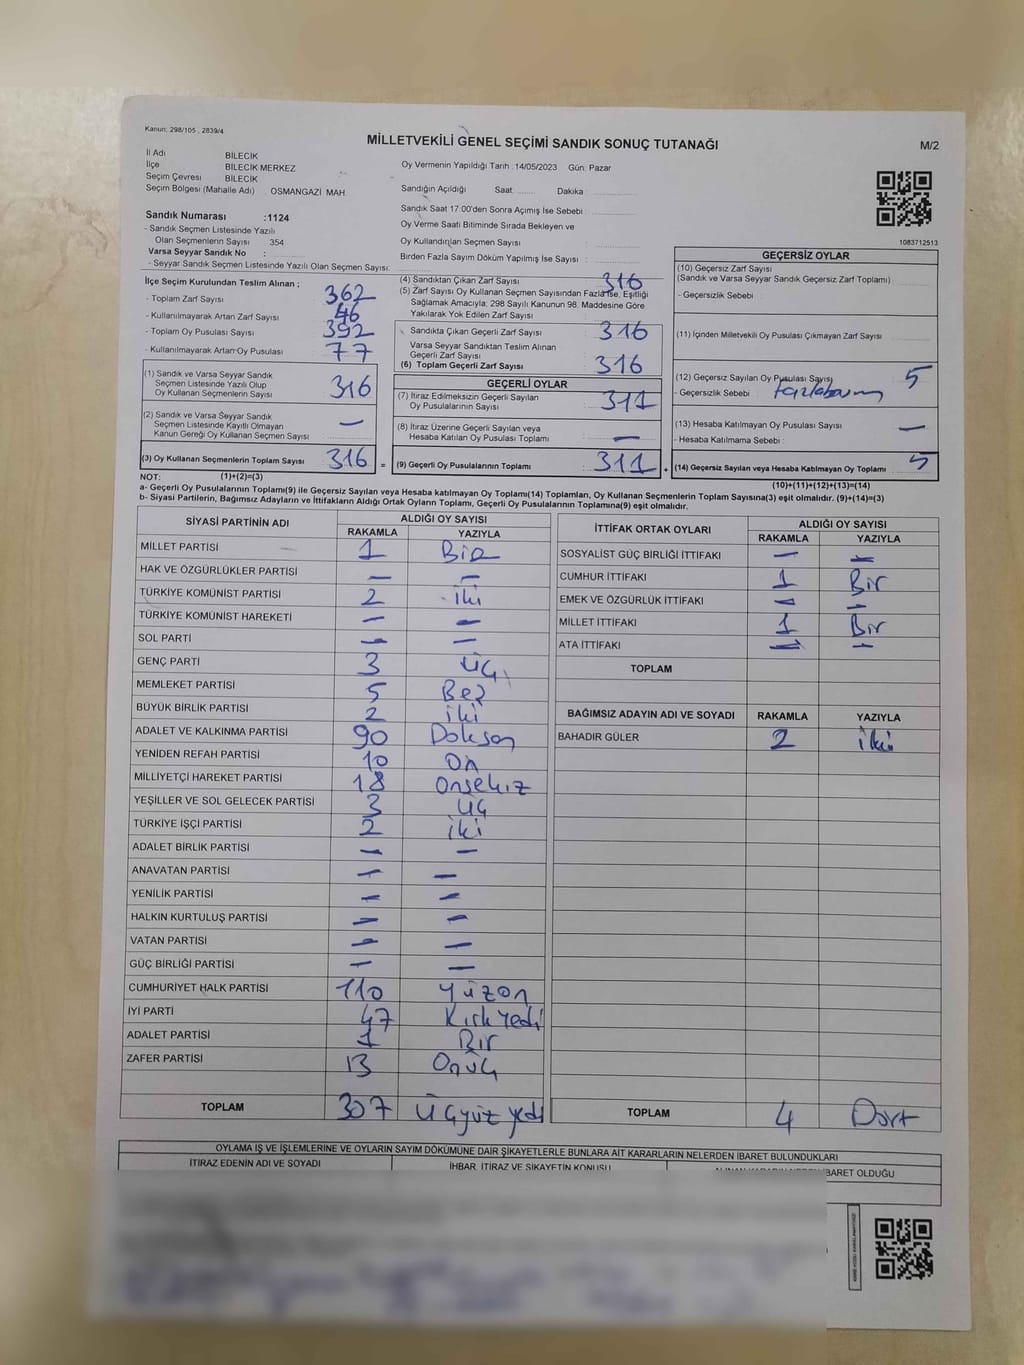 Kanun: 298/105 , 2839/4
MİLLETVEKİLİ GENEL SEÇİMİ SANDIK SONUÇ TUTANAĞI
M/2
İl Adı BİLECİK
İlçe BİLECİK MERKEZ
Seçim Çevresi BİLECİK
Seçim Bölgesi (Mahalle Adı) OSMANGAZİ MAH.
Sandık Numarası :1124
- Sandık Seçmen Listesinde Yazılı
Olan Seçmenlerin Sayısı : 354
Varsa Seyyar Sandık No :
- Seyyar Sandık Seçmen Listesinde Yazılı Olan Seçmen Sayısı:
Oy Vermenin Yapıldığı Tarih : 14/05/2023 Gün: Pazar
Sandığın Açıldığı Saat: Dakika :
Sandık Saat 17:00'den Sonra Açımış İse Sebebi :
Oy Verme Saati Bitiminde Sırada Bekleyen ve
Oy Kullandırılan Seçmen Sayısı :
Birden Fazla Sayım Döküm Yapılmış İse Sayısı :
1083712513
İlçe Seçim Kurulundan Teslim Alınan ;
- Toplam Zarf Sayısı : 362
- Kullanılmayarak Artan Zarf Sayısı : 46
- Toplam Oy Pusulası Sayısı : 392
- Kullanılmayarak Artan Oy Pusulası : 77
(1) Sandık ve Varsa Seyyar Sandık
Seçmen Listesinde Yazılı Olup
Oy Kullanan Seçmenlerin Sayısı : 316
(2) Sandık ve Varsa Seyyar Sandık
Seçmen Listesinde Kayıtlı Olmayan
Kanun Gereği Oy Kullanan Seçmen Sayısı : —
(3) Oy Kullanan Seçmenlerin Toplam Sayısı : 316 =
(4) Sandıktan Çıkan Zarf Sayısı : 316
(5) Zarf Sayısı Oy Kullanan Seçmen Sayısından Fazla İse, Eşitliği
Sağlamak Amacıyla; 298 Sayılı Kanunun 98. Maddesine Göre
Yakılarak Yok Edilen Zarf Sayısı :
Sandıkta Çıkan Geçerli Zarf Sayısı : 316
Varsa Seyyar Sandıktan Teslim Alınan
Geçerli Zarf Sayısı :
(6) Toplam Geçerli Zarf Sayısı : 316
GEÇERLİ OYLAR
(7) İtiraz Edilmeksizin Geçerli Sayılan
Oy Pusulalarının Sayısı : 311
(8) İtiraz Üzerine Geçerli Sayılan veya
Hesaba Katılan Oy Pusulası Toplamı : —
(9) Geçerli Oy Pusulalarının Toplamı : 311 +
GEÇERSİZ OYLAR
(10) Geçersiz Zarf Sayısı
(Sandık ve Varsa Seyyar Sandık Geçersiz Zarf Toplamı) :
- Geçersizlik Sebebi :
(11) İçinden Milletvekili Oy Pusulası Çıkmayan Zarf Sayısı :
(12) Geçersiz Sayılan Oy Pusulası Sayısı : 5
- Geçersizlik Sebebi :
(13) Hesaba Katılmayan Oy Pusulası Sayısı : —
- Hesaba Katılmama Sebebi :
(14) Geçersiz Sayılan veya Hesaba Katılmayan Oy Toplamı : 5
NOT: (1)+(2)=(3)
(10)+(11)+(12)+(13)=(14)
a- Geçerli Oy Pusulalarının Toplamı(9) ile Geçersiz Sayılan veya Hesaba katılmayan Oy Toplamı(14) Toplamları, Oy Kullanan Seçmenlerin Toplam Sayısına(3) eşit olmalıdır. (9)+(14)=(3)
b- Siyasi Partilerin, Bağımsız Adayların ve İttifakların Aldığı Ortak Oyların Toplamı, Geçerli Oy Pusulalarının Toplamına(9) eşit olmalıdır.
SİYASİ PARTİNİN ADI ALDIĞI OY SAYISI
RAKAMLA YAZIYLA
MİLLET PARTİSİ 1 Bir
HAK VE ÖZGÜRLÜKLER PARTİSİ — —
TÜRKİYE KOMÜNİST PARTİSİ 2 iki
TÜRKİYE KOMÜNİST HAREKETİ — —
SOL PARTİ — —
GENÇ PARTİ 3 Üç
MEMLEKET PARTİSİ 5 Beş
BÜYÜK BİRLİK PARTİSİ 2 iki
ADALET VE KALKINMA PARTİSİ 90 Doksan
YENİDEN REFAH PARTİSİ 10 On
MİLLİYETÇİ HAREKET PARTİSİ 18 Onsekiz
YEŞİLLER VE SOL GELECEK PARTİSİ 3 Üç
TÜRKİYE İŞÇİ PARTİSİ 2 iki
ADALET BİRLİK PARTİSİ — —
ANAVATAN PARTİSİ — —
YENİLİK PARTİSİ — —
HALKIN KURTULUŞ PARTİSİ — —
VATAN PARTİSİ — —
GÜÇ BİRLİĞİ PARTİSİ — —
CUMHURİYET HALK PARTİSİ 110 Yüzon
İYİ PARTİ 47 Kırkyedi
ADALET PARTİSİ 1 Bir
ZAFER PARTİSİ 13 Onüç
TOPLAM 307 Üçyüz yedi
İTTİFAK ORTAK OYLARI ALDIĞI OY SAYISI
RAKAMLA YAZIYLA
SOSYALİST GÜÇ BİRLİĞİ İTTİFAKI — —
CUMHUR İTTİFAKI 1 Bir
EMEK VE ÖZGÜRLÜK İTTİFAKI — —
MİLLET İTTİFAKI 1 Bir
ATA İTTİFAKI — —
TOPLAM
BAĞIMSIZ ADAYIN ADI VE SOYADI RAKAMLA YAZIYLA
BAHADIR GÜLER 2 iki
TOPLAM 4 Dört
OYLAMA İŞ VE İŞLEMLERİNE VE OYLARIN SAYIM DÖKÜMÜNE DAİR ŞİKAYETLERLE BUNLARA AİT KARARLARIN NELERDEN İBARET BULUNDUKLARI
İTİRAZ EDENİN ADI VE SOYADI İHBAR, İTİRAZ VE ŞİKAYETİN KONUSU ALINAN KARARIN NEDEN İBARET OLDUĞU